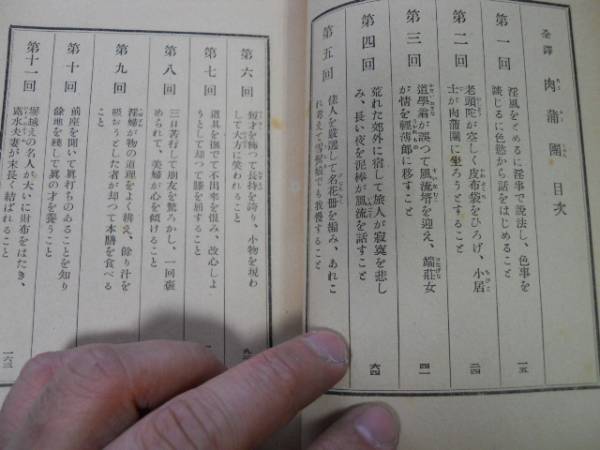 全譯 肉蒲團 目次
第一回 淫風をとめるに淫事で說法し、色事を
談じるに色慾から話をはじめること 一五
第二回 老頭陀が空しく皮布袋をひろげ、小居
士が肉蒲團に坐ろうとすること 二四
第三回 道學翁が誤つて風流壻を迎え、端莊女
が情を輕薄郎に移すこと 四一
第四回 荒れた郊外に宿して旅人が寂寞を悲し
み、長い夜を泥棒が風流を話すこと 六四
第五回 佳人を嚴選して名花冊を編み、あれこ
れ考えて雪娘でも我慢すること
第六回 短才を飾つて長持を誇り、小物を現わ
して大方に笑われること
第七回 道具を撫でて不出來を恨み、改心しよ
うとして却つて膝を屈すること
第八回 三月苦行して朋友を驚ろかし、一回
められて、美婦が心を傾けること
第九回 淫婦が物の道理をよく辨え、餘り汁を
吸おうとした者が却つて本膳を食べる
こと
第十回 前座を聞いて眞打ちのあることを知り
餘地を殘して眞の才を養うこと
第十一回 の名人が大いに財布をはたき、
露水夫妻が末長く結ばれること 一六三